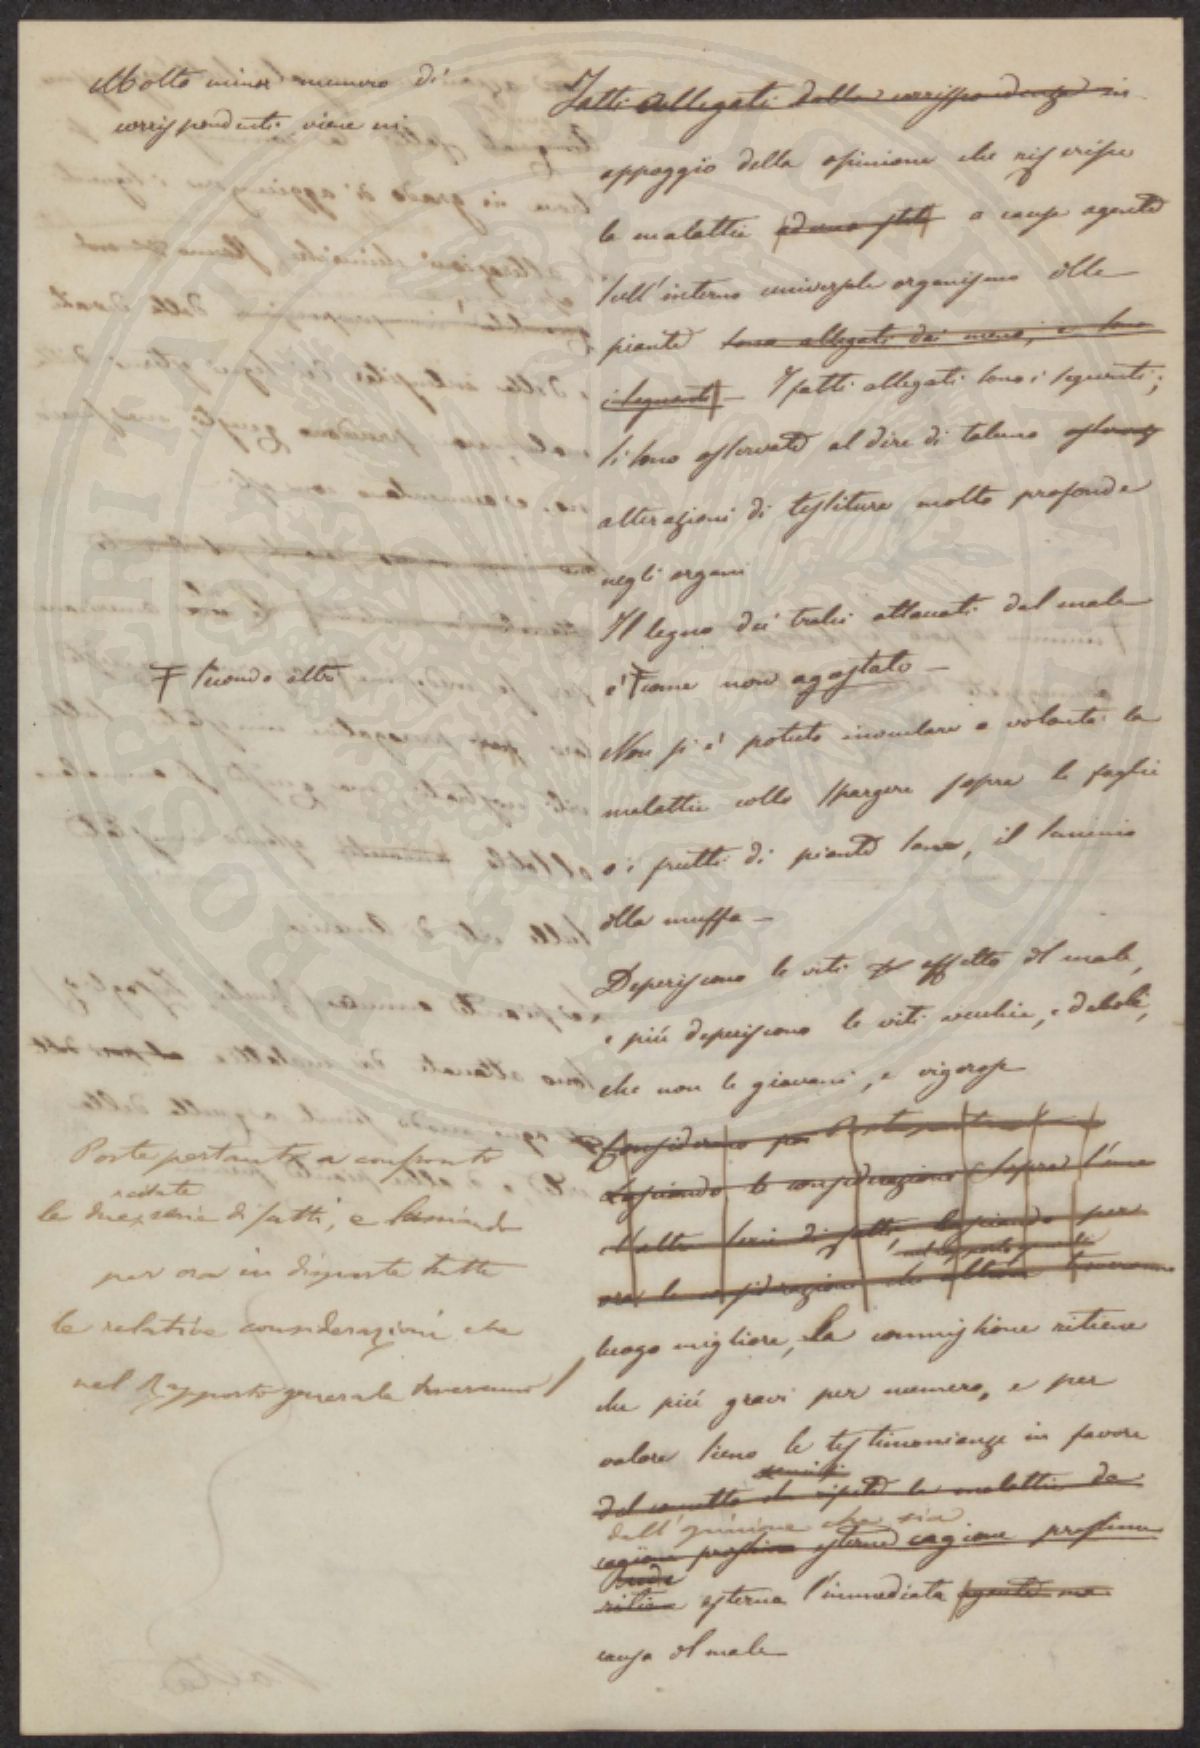 Molto minor numero di
corrispondenti viene in
Fatti allegati dalla corrispondenza in
appoggio della opinione che riferisce
la malattia ad uno stato a causa agente
sull'interno universale organismo delle
piante sono allegati dai meno, e sono
i seguenti — I fatti allegati sono i seguenti;
si sono osservate al dire di taluno
alterazioni di tessitura molto profonde
negli organi
Il legno dei tralci attaccati dal male
Ŧ secondo altri
è Ŧ come non agostato —
Non si è potuto inoculare a volontà la
malattia collo spargere sopra le foglie
o i frutti di piante sane, il seminio
della muffa —
Deperiscono le viti per effetto del male,
e più deperiscono le viti vecchie, e deboli,
che non le giovani, e vigorose
Lasciando le considerazioni sopra l'una
l'altra serie di fatti, lasciando per
nel rapporto
ora le considerazioni che troveranno
Poste pertanto a confronto
recitate
le due serie di fatti, e lasciando
per ora in disparte tutte
le relative considerazioni che
nel Rapporto generale troveranno /
luogo migliore, la commissione ritiene
che più gravi per numero, e per
valore sieno le testimonianze in favore
del concetto che ripete la malattia da
dell'opinione che sia
cagione prossima esterna cagione prossima
esterna l'immediata agente
causa del male